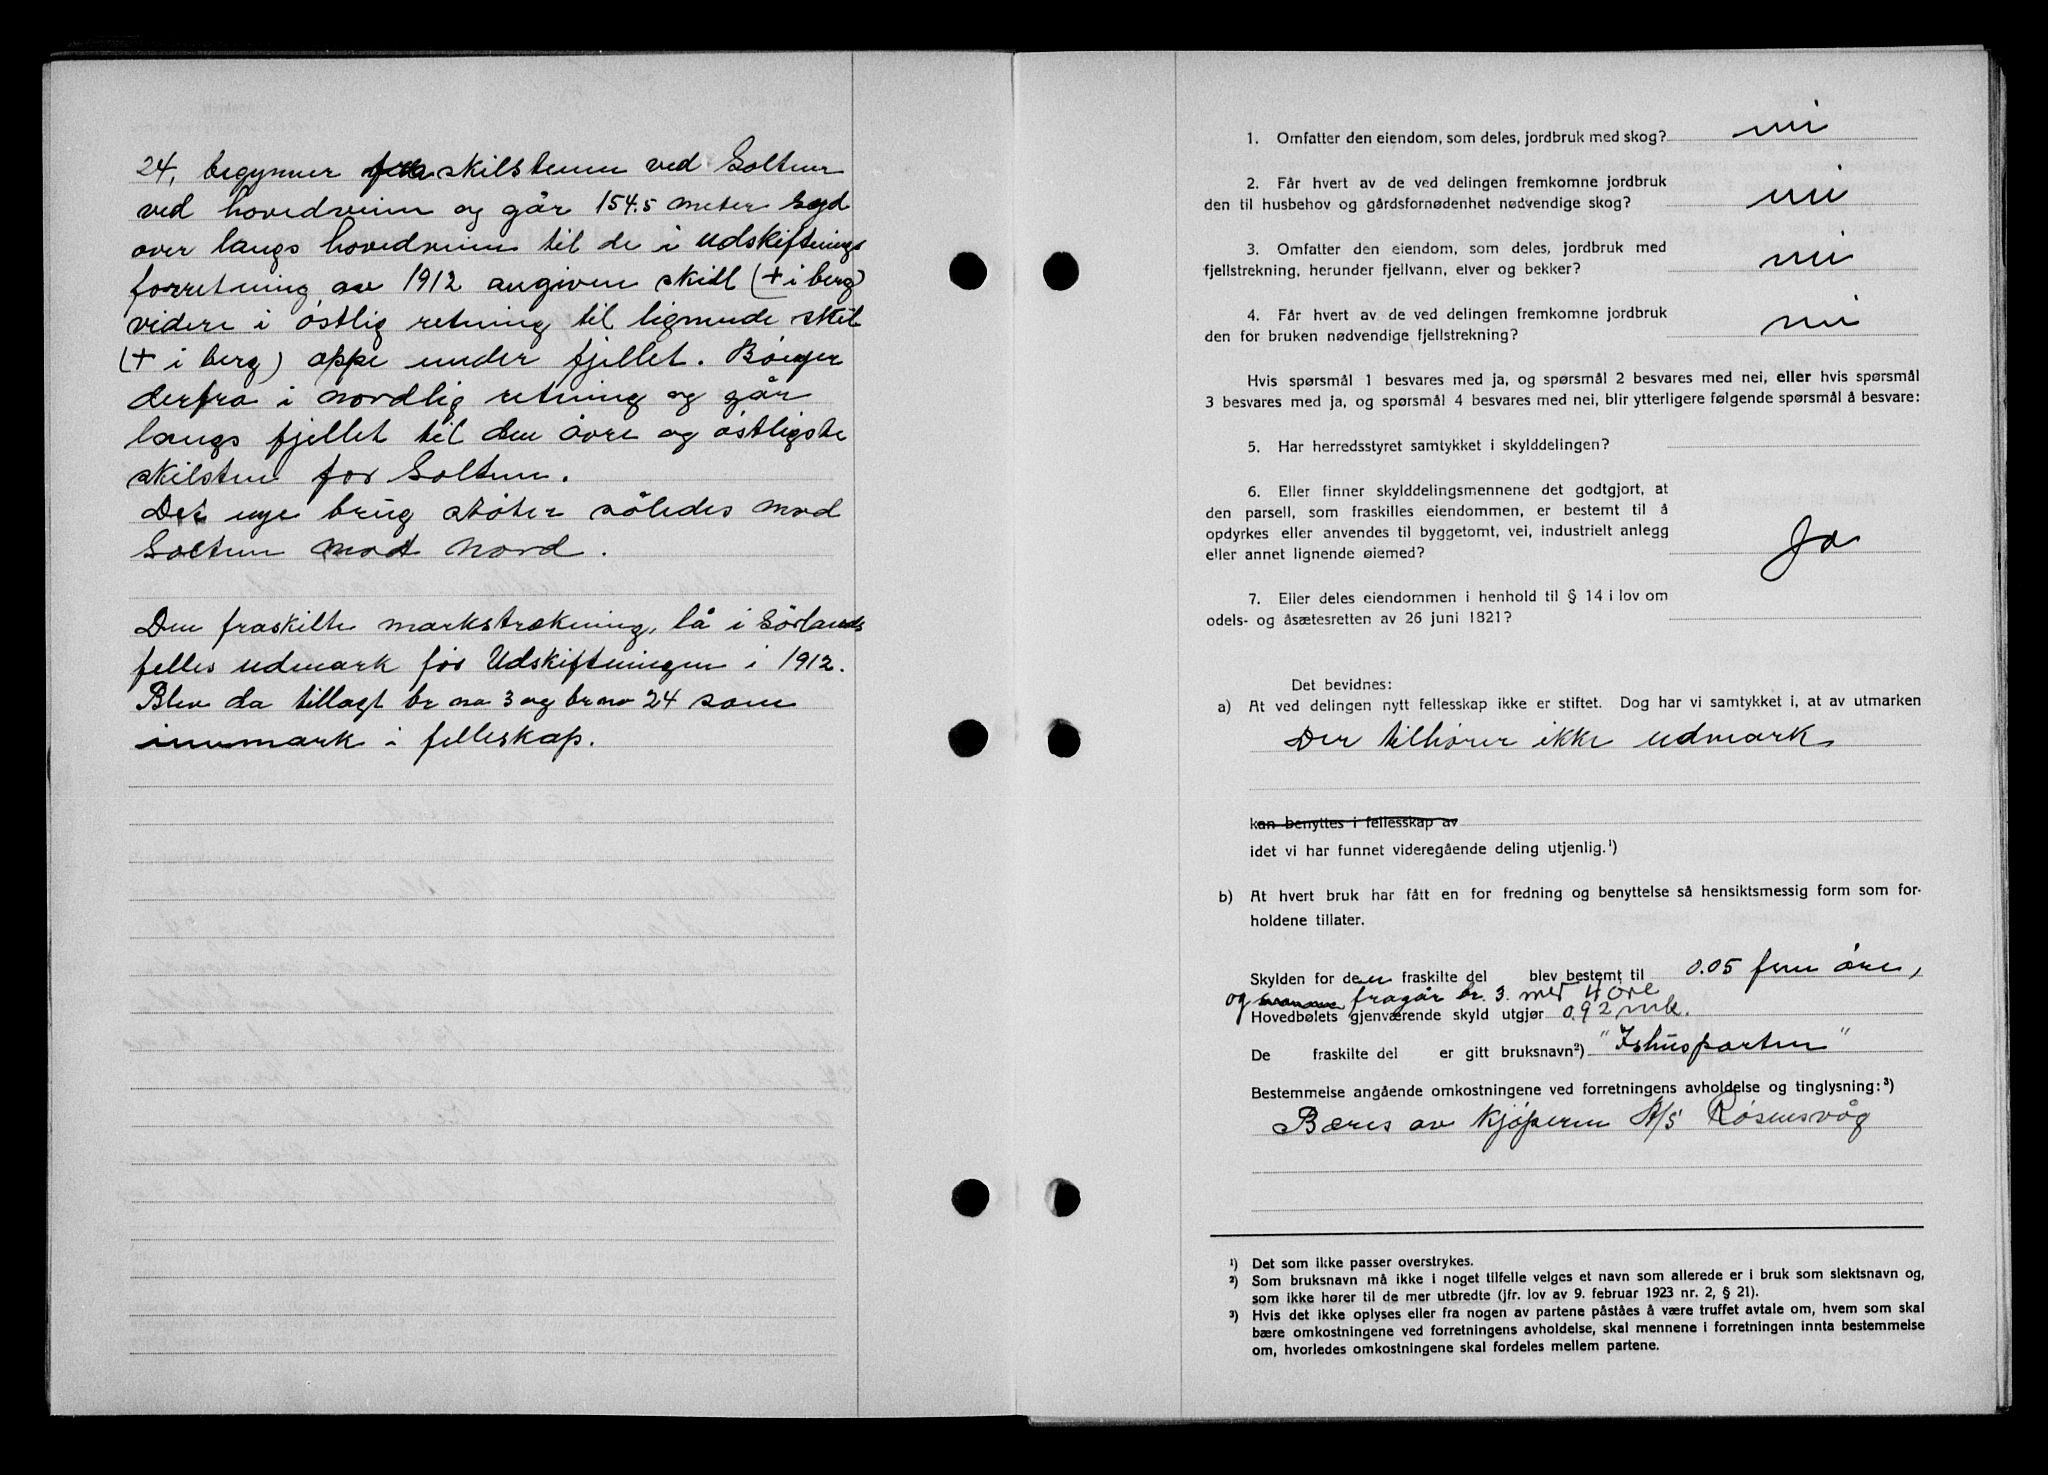 24, begynner fra skilstenen ved Soltun
ved hovedveien og går 154.5 meter syd
over langs hovedveien til de i udskiftnings
forretning av 1912 angiven skill (+ i berg)
videre i östlig retning til lignende skil
(+ i berg) oppe under fjellet. Böiger
derfra i nordlig retning og går
langs fjellet til den övre og östligste
skilsten for Soltun.
Det nye brug stöter således mod
Soltun mot nord.
Den fraskilte markstrækning, lå i Sörlands
felles udmark för Udskiftningen i 1912.
Blev da tillagt br no 3 og br no 24 som
innmark i felleskap.
1. Omfatter den eiendom, som deles, jordbruk med skog? nei
2. Får hvert av de ved delingen fremkomne jordbruk
den til husbehov og gårdsfornødenhet nødvendige skog? nei
3. Omfatter den eiendom, som deles, jordbruk med
fjellstrekning, herunder fjellvann, elver og bekker? nei
4. Får hvert av de ved delingen fremkomne jordbruk
den for bruken nødvendige fjellstrekning? nei
Hvis spørsmål 1 besvares med ja, og spørsmål 2 besvares med nei, eller hvis spørsmål
3 besvares med ja, og spørsmål 4 besvares med nei, blir ytterligere følgende spørsmål å besvare:
5. Har herredsstyret samtykket i skylddelingen?
6. Eller finner skylddelingsmennene det godtgjort, at
den parsell, som fraskilles eiendommen, er bestemt til å
opdyrkes eller anvendes til byggetomt, vei, industrielt anlegg
eller annet lignende øiemed? Ja
7. Eller deles eiendommen i henhold til § 14 i lov om
odels- og åsætesretten av 26 juni 1821?
Det bevidnes:
a) At ved delingen nytt fellesskap ikke er stiftet. Dog har vi samtykket i, at av utmarken
Der tilhører ikke udmark
kan benyttes i fellesskap av
idet vi har funnet videregående deling utjenlig.¹)
b) At hvert bruk har fått en for fredning og benyttelse så hensiktsmessig form som for-
holdene tillater.
Skylden for den fraskilte del blev bestemt til 0.05 fem öre,
og fragår br. 3. med 4 öre
Hovedbølets gjenværende skyld utgjør 0,92 mk.
De fraskilte del er gitt bruksnavn²) "Ishusparten"
Bestemmelse angående omkostningene ved forretningens avholdelse og tinglysning:³)
Bæres av kjöperen A/S Rösnesvåg
¹) Det som ikke passer overstrykes.
²) Som bruksnavn må ikke i noget tilfelle velges et navn som allerede er i bruk som slektsnavn og,
som ikke hører til de mer utbredte (jfr. lov av 9. februar 1923 nr. 2, § 21).
³) Hvis det ikke oplyses eller fra nogen av partene påståes å være truffet avtale om, hvem som skal
bære omkostningene ved forretningens avholdelse, skal mennene i forretningen innta bestemmelse
om, hvorledes omkostningene skal fordeles mellem partene.